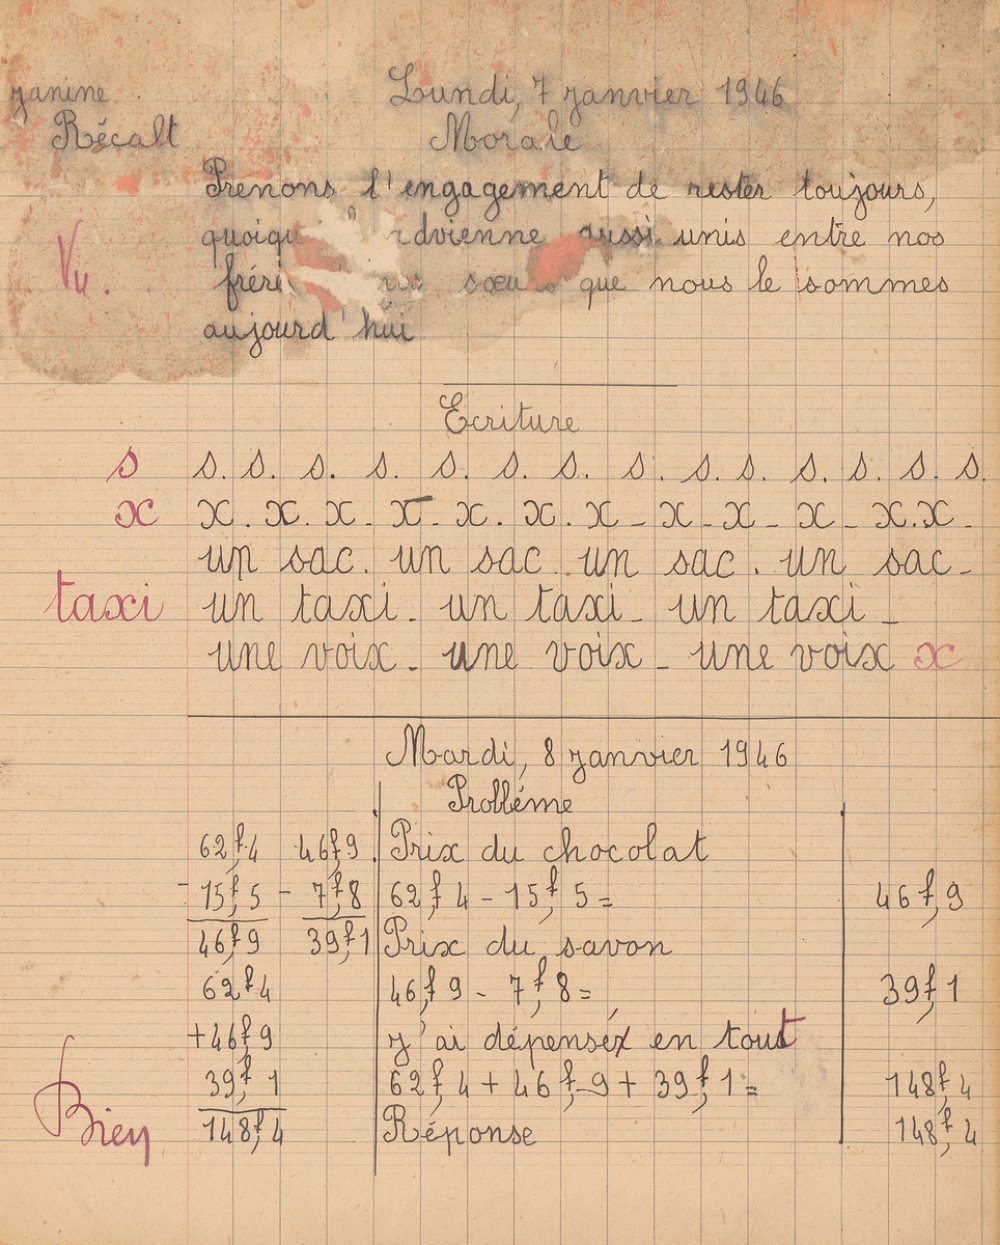 Janine
Récalt
Lundi, 7 janvier 1946
Morale
Prenons l'engagement de rester toujours,
quoiqu advienne aussi unis entre nos
frère sœu que nous le sommes
aujourd'hui
Vu.
Ecriture
s s. s. s. s. s. s. s. s. s. s. s. s. s. s.
x x. x. x - x - x. x. x - x - x - x - x. x -
un sac. un sac. un sac. un sac -
taxi un taxi. un taxi - un taxi -
une voix - une voix - une voix x
Mardi, 8 janvier 1946
Problème
62f,4 46f,9 Prix du chocolat
- 15f,5 - 7f,8 62f,4 - 15f,5 = 46f,9
46f,9 39f,1 Prix du savon
62f,4 46f,9 - 7f,8 = 39f,1
+ 46f,9 j'ai dépensé en tout
39f,1 62f,4 + 46f,9 + 39f,1 = 148f,4
148f,4 Réponse 148f,4
Bien